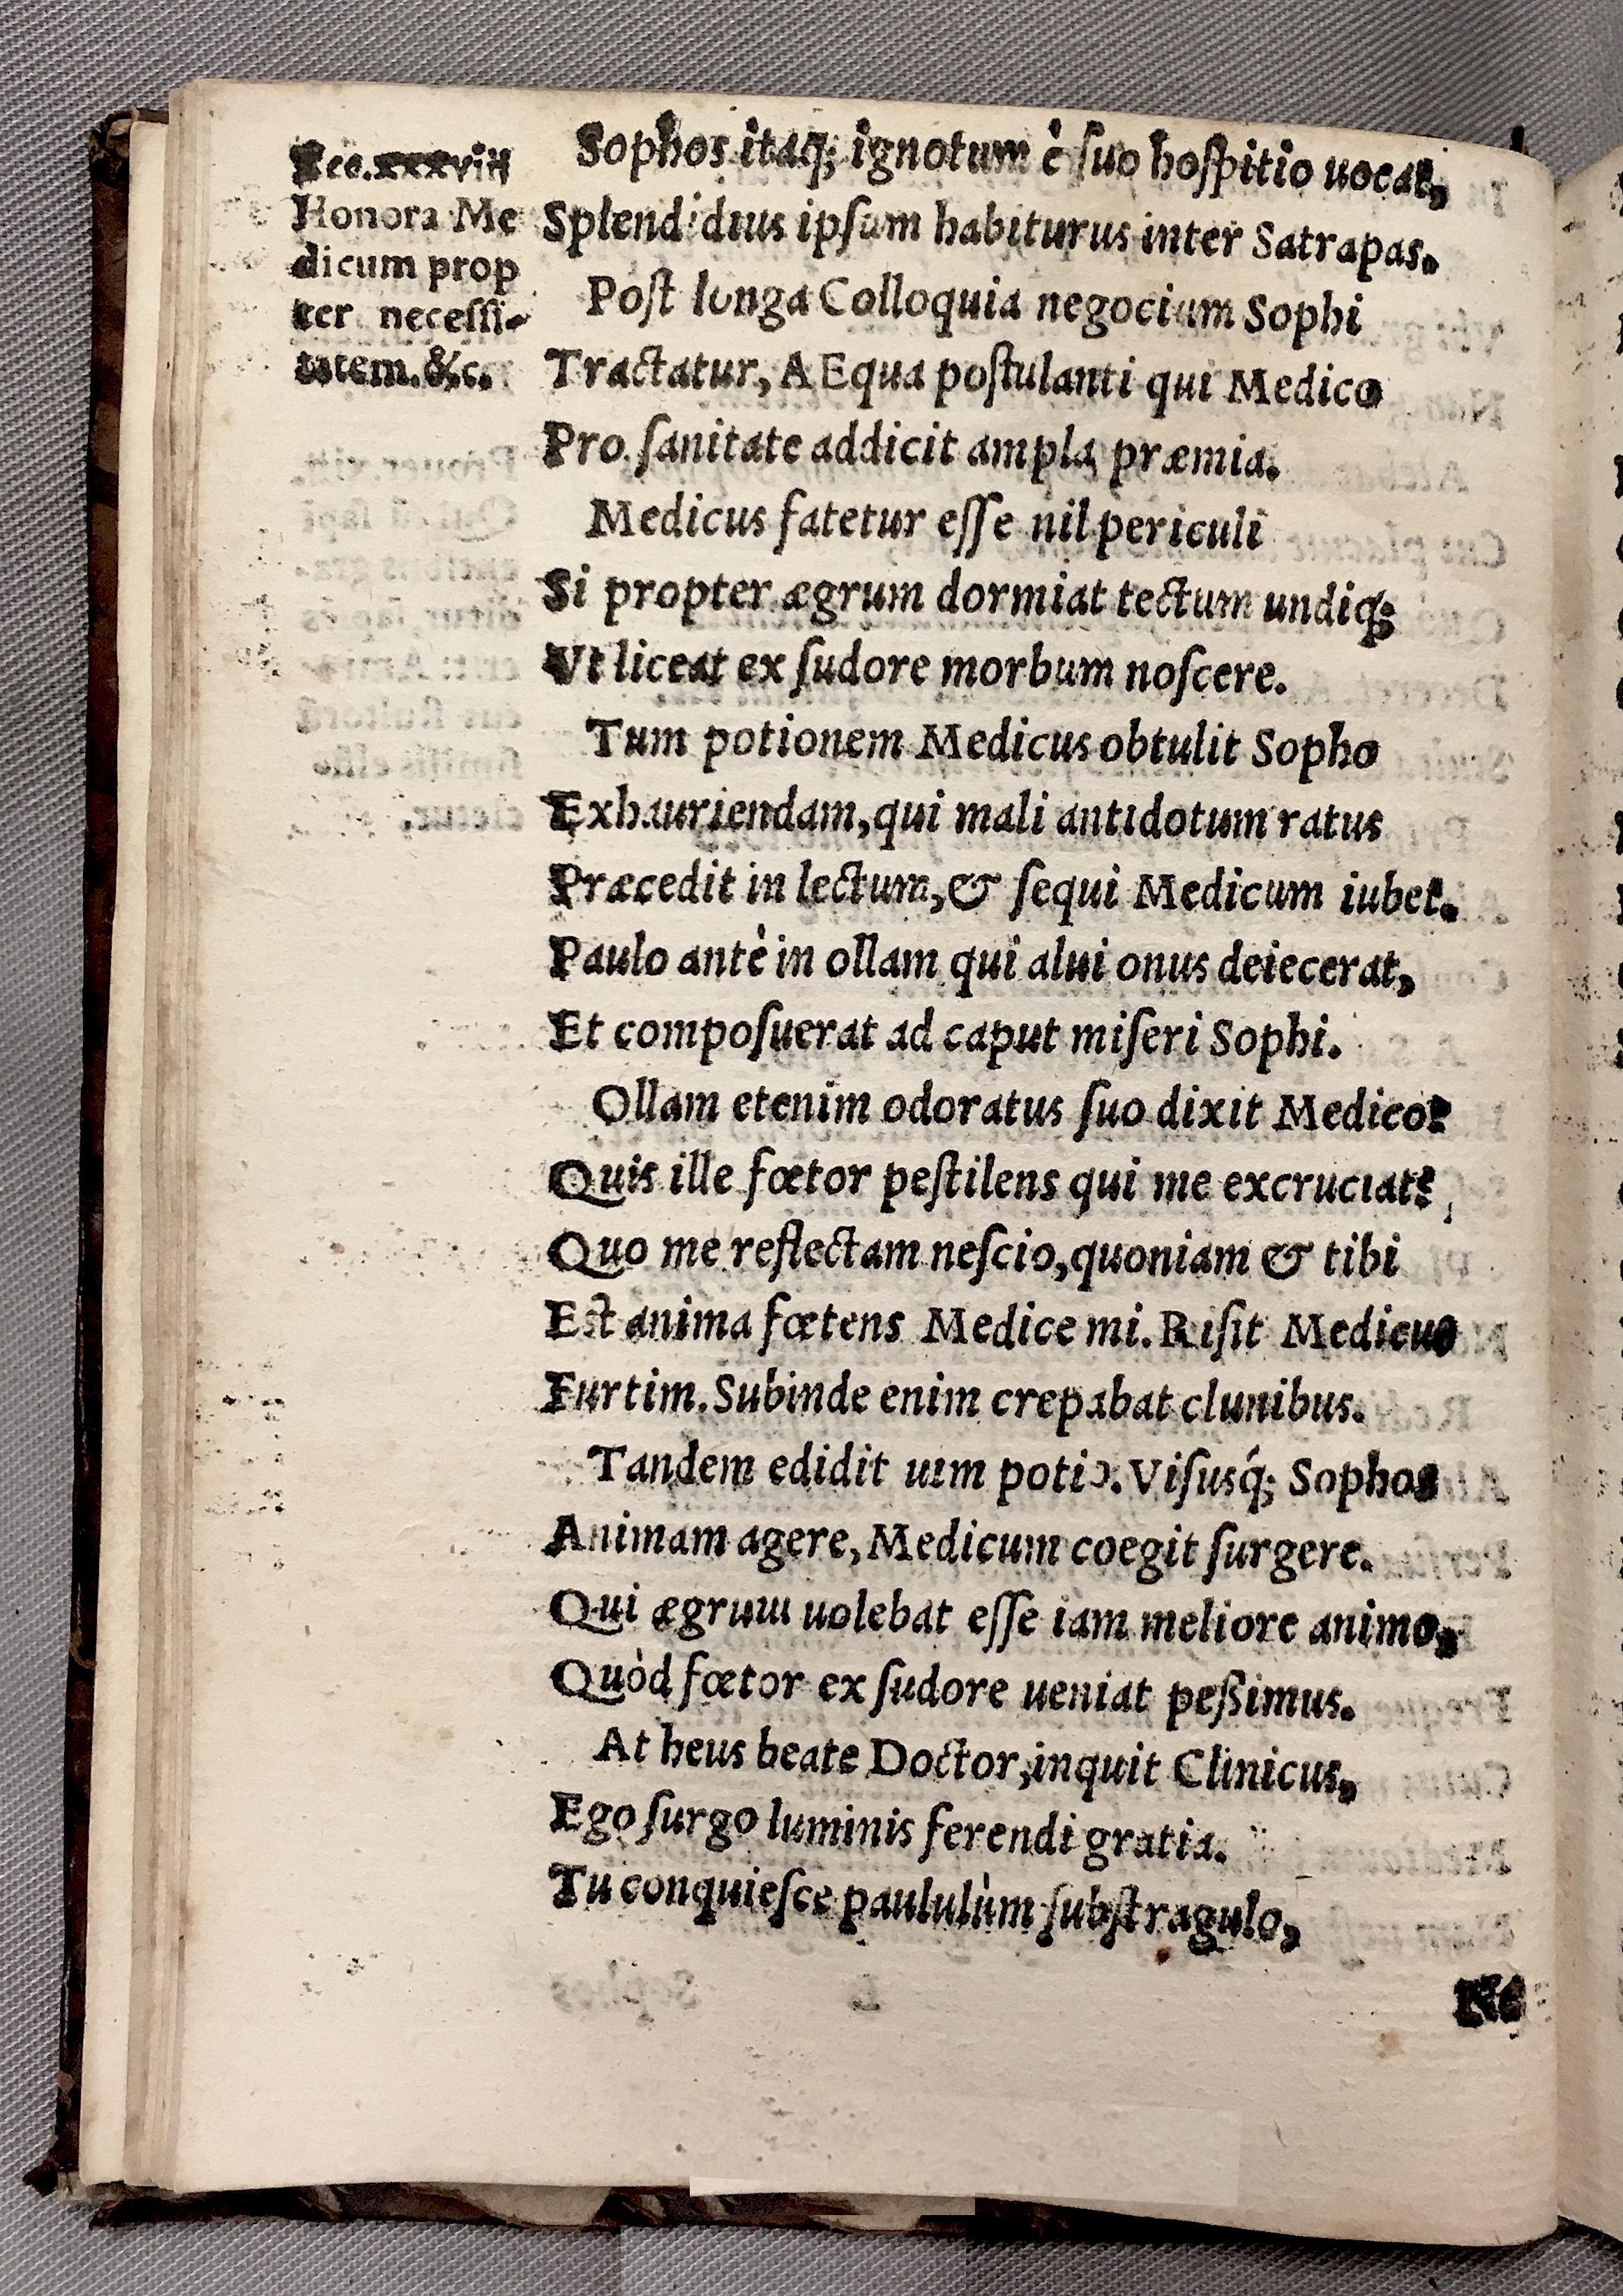 Ecc. xxxviii
Honora Me
dicum prop
ter necessi-
tatem. &c.
Sophos itaq; ignotum è ſuo hoſpitio uocat,
Splendidius ipſum habiturus inter Satrapas.
Poſt longa Colloquia negocium Sophi
Tractatur, AEqua poſtulanti qui Medico
Pro ſanitate addicit ampla præmia.
Medicus fatetur eſſe nil periculi
Si propter ægrum dormiat tectum undiq;
Vt liceat ex ſudore morbum noſcere.
Tum potionem Medicus obtulit Sopho
Exhauriendam, qui mali antidotum ratus
Præcedit in lectum, & ſequi Medicum iubet.
Paulo antè in ollam qui alui onus deiecerat,
Et compoſuerat ad caput miſeri Sophi.
Ollam etenim odoratus ſuo dixit Medico:
Quis ille fœtor peſtilens qui me excruciat?
Quo me reflectam neſcio, quoniam & tibi
Est anima fœtens Medice mi. Riſit Medicus
Furtim. Subinde enim crepabat clunibus.
Tandem edidit uim potio. Viſusq́; Sophos
Animam agere, Medicum coegit ſurgere.
Qui ægrum uolebat eſſe iam meliore animo,
Quòd fœtor ex ſudore ueniat peßimus.
At heus beate Doctor, inquit Clinicus,
Ego ſurgo luminis ferendi gratia.
Tu conquieſce paululùm ſub ſtragulo,
Ne